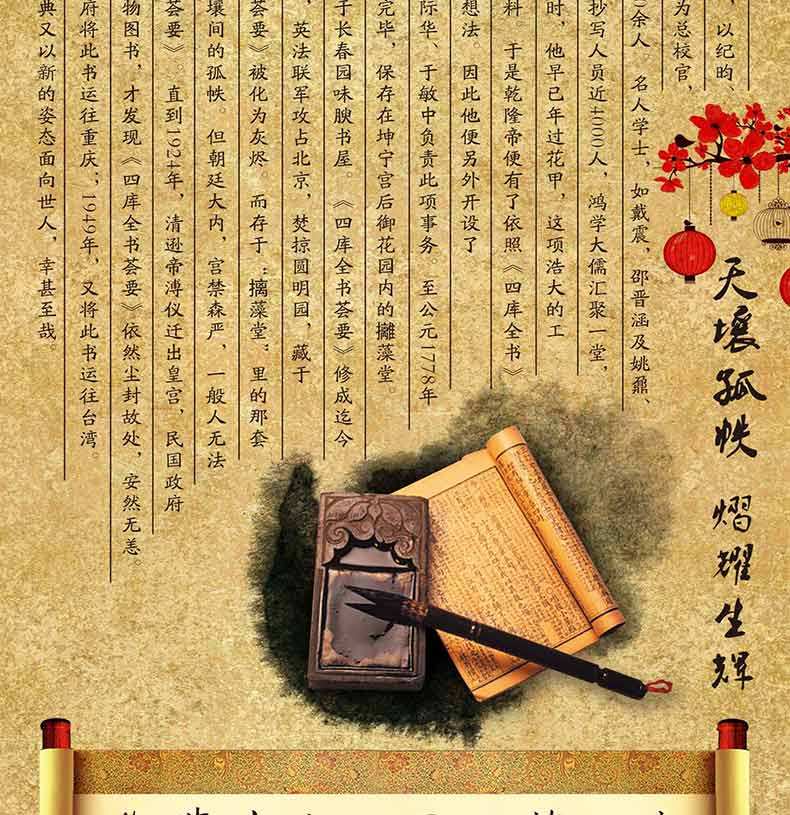 天壤孤帙 熠耀生辉
，以纪昀、
为总校官，
0余人 名人学士，如戴震，邵晋涵及姚鼐、
抄写人员近4000人，鸿学大儒汇聚一堂，
时，他早已年过花甲，这项浩大的工
料。于是乾隆帝便有了依照《四库全书》
想法。因此他便另外开设了
际华、于敏中负责此项事务。至公元1778年
完毕，保存在坤宁宫后御花园内的攡藻堂。
于长春园味腴书屋。《四库全书荟要》修成迄今
，英法联军攻占北京，焚掠圆明园，藏于
荟要》被化为灰烬 而存于“摛藻堂”里的那套
壤间的孤帙。但朝廷大内，宫禁森严，一般人无法
荟要》。直到1924年，清逊帝溥仪迁出皇宫，民国政府
物图书，才发现《四库全书荟要》依然尘封故处，安然无恙。
府将此书运往重庆；1949年，又将此书运往台湾
典又以新的姿态面向世人，幸甚至哉。